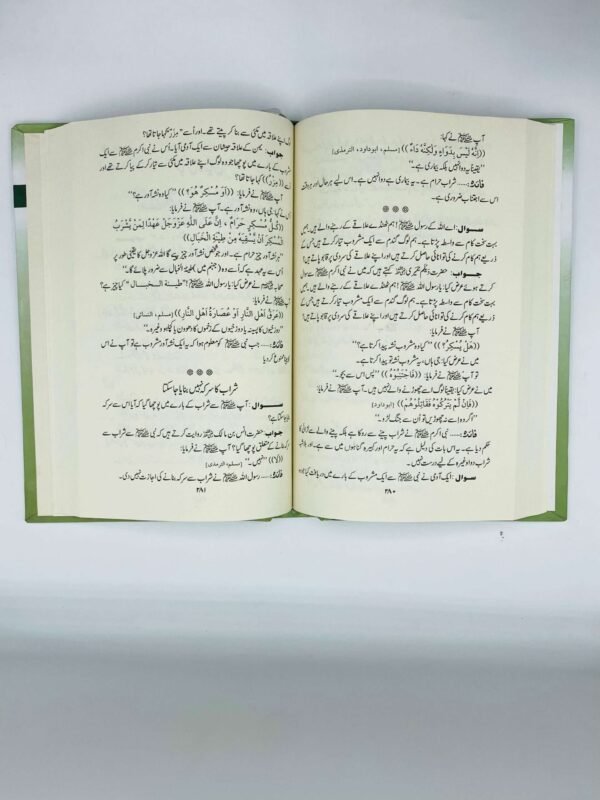 آپ ﷺ نے کہا:
((إِنَّهُ لَيْسَ بِدَوَاءٍ وَلَكِنَّهُ دَاءٌ)) [مسلم، ابوداود، الترمذی]
"یقیناً یہ دوا نہیں بلکہ بیماری ہے۔"
فائدہ:..... شراب حرام ہے۔ یہ بیماری ہے دوا نہیں ہے۔ اس لیے ہر حال اور ہر وقت
اس سے اجتناب ضروری ہے۔
سوال: اے اللہ کے رسول ﷺ ہم ٹھنڈے علاقے کے رہنے والے ہیں۔ ہمیں
بہت سخت کام سے واسطہ پڑتا ہے۔ ہم لوگ گندم سے ایک مشروب تیار کرتے ہیں جس کے
ذریعے ہم کام کرنے کی توانائی حاصل کرتے ہیں اور اپنے علاقے کی سردی پر قابو پاتے ہیں؟
جواب: حضرت دیلم حمیری کہتے ہیں کہ میں نے نبی اکرم ﷺ سے سوال
کرتے ہوئے عرض کیا: یا رسول اللہ ﷺ! ہم ٹھنڈے علاقے کے رہنے والے ہیں، ہمیں
بہت سخت کام سے واسطہ پڑتا ہے۔ ہم لوگ گندم سے ایک مشروب تیار کرتے ہیں جس کے
ذریعے ہم کام کرنے کی توانائی حاصل کرتے ہیں اور اپنے علاقے کی سردی پر قابو پاتے ہیں
آپ ﷺ نے فرمایا:
((هَلْ يُسْكِرُ؟)) "کیا وہ مشروب نشہ پیدا کرتا ہے؟"
میں نے عرض کیا: جی ہاں، یہ مشروب نشہ تو پیدا کرتا ہے۔
تو آپ ﷺ نے فرمایا: ((فَاجْتَنِبُوهُ)) "پس اس سے بچو۔"
میں نے عرض کیا: یقیناً لوگ اسے چھوڑنے والے نہیں ہیں۔ آپ ﷺ نے فرمایا:
((فَإِنْ لَمْ يَتْرُكُوهُ فَقَاتِلُوهُمْ)) [ابوداود]
"اگر وہ اسے نہ چھوڑیں تو ان سے جنگ لڑو۔"
فائدہ:..... نبی اکرم ﷺ نے شراب پینے سے روکا ہے بلکہ پینے والے سے لڑائی کا
حکم دیا ہے۔ یہ اس بات کی دلیل ہے کہ یہ حرام اور کبیرہ گناہوں میں سے ہے۔ اور بلاشبہ
شراب دوا وغیرہ کے لیے درست نہیں۔
سوال: ایک آدمی نے نبی ﷺ سے ایک مشروب کے بارے میں دریافت کیا جو وہ
۲۸۰
لوگ اپنے علاقہ میں مکئی سے بنا کر پیتے تھے۔ اور اُسے "مِزر" کہا جاتا تھا؟
جواب: یمن کے علاقہ جیشان سے ایک آدمی آیا۔ اُس نے نبی اکرم ﷺ سے ایک
شراب کے بارے میں پوچھا جو وہ لوگ اپنے علاقے میں مکئی سے تیار کر کے پیا کرتے تھے اور
اُسے ((مِزر)) کہا جاتا تھا۔
آپ ﷺ نے فرمایا: ((أَوَ مُسْكِرٌ هُوَ؟)) "کیا وہ نشہ آور ہے؟"
اُس نے کہا: جی ہاں، وہ نشہ آور ہے۔ آپ ﷺ نے فرمایا:
((كُلُّ مُسْكِرٍ حَرَامٌ، إِنَّ عَلَى اللَّهِ عَزَّوَجَلَّ عَهْدًا لِمَنْ يَشْرَبُ
الْمُسْكِرَ أَنْ يَسْقِيَهُ مِنْ طِينَةِ الْخَبَالِ))
"ہر نشہ آور چیز حرام ہے۔ اور جو شخص نشہ آور چیز پیے گا اللہ عزوجل کا یقینی طور پر
اُس سے یہ عہد ہے کہ اُسے وہ (جہنم میں) طینۃ الخبال سے ضرور پلائے گا۔"
صحابہ نے عرض کیا: یا رسول اللہ ﷺ! "طینۃ الخبال" کیا چیز ہے؟
آپ ﷺ نے فرمایا:
((عَرَقُ أَهْلِ النَّارِ أَوْ عُصَارَةُ أَهْلِ النَّارِ)) [مسلم، النسائی]
"دوزخیوں کا پسینہ یا دوزخیوں کے زخموں کا دھوون یا پیپ وغیرہ۔"
فائدہ:..... جب نبی ﷺ کو معلوم ہوا کہ یہ ایک نشہ آور مشروب ہے تو آپ نے اس
کو ممنوع کر دیا
شراب کا سرکہ نہیں بنایا جا سکتا
سوال: آپ ﷺ سے شراب کے بارے میں پوچھا گیا کہ آیا اس سے سرکہ
بنایا جا سکتا ہے؟
جواب: حضرت انس بن مالک روایت کرتے ہیں کہ نبی ﷺ سے شراب سے
سرکہ بنانے کے متعلق پوچھا گیا؟ آپ ﷺ نے فرمایا:
((لَا)) "نہیں۔" [مسلم، الترمذی]
فائدہ:..... رسول اللہ ﷺ نے شراب سے سرکہ بنانے کی اجازت نہیں دی۔
۲۸۱